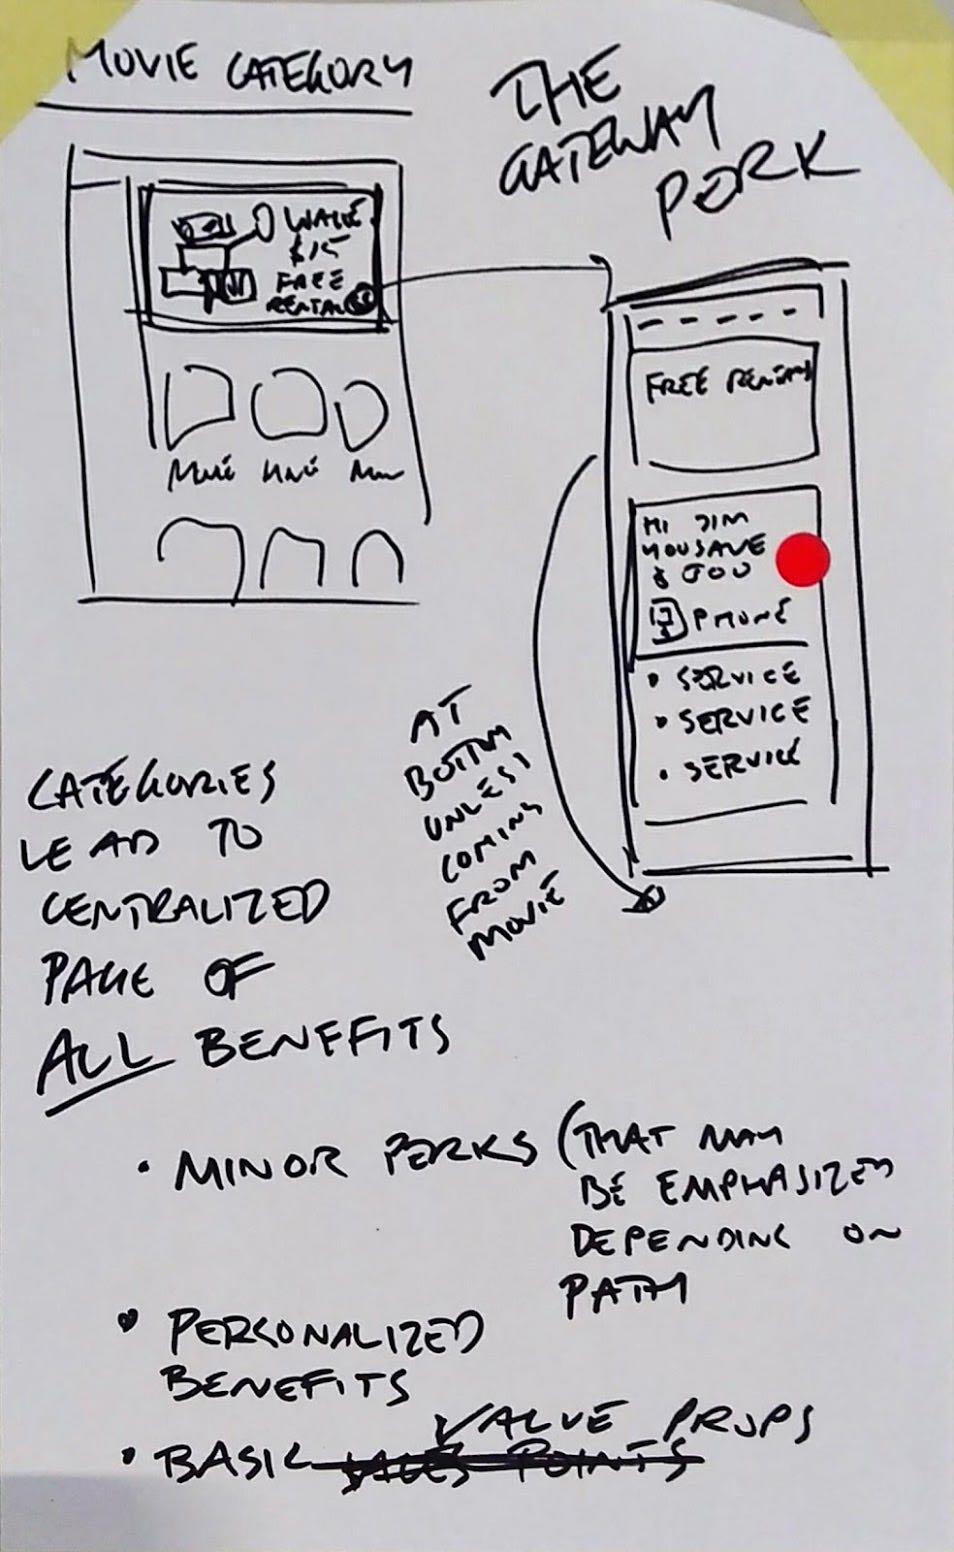 MOVIE CATEGORY
THE
GATEWAY
PERK
$15
FREE
RENTAL
FREE RENTAL
HI JIM
YOU SAVE
PHONE
• SERVICE
• SERVICE
• SERVICE
AT
BOTTOM
UNLESS
COMING
FROM
MOVIE
CATEGORIES
LEAD TO
CENTRALIZED
PAGE OF
ALL BENEFITS
• MINOR PERKS (THAT MAY
BE EMPHASIZED
DEPENDING ON
PATH
• PERSONALIZED
BENEFITS
VALUE PROPS
• BASIC SALES POINTS